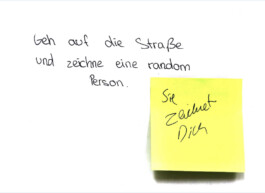 Geh auf die Straße
und zeichne eine random
Person.
Sie
zeichnet
Dich